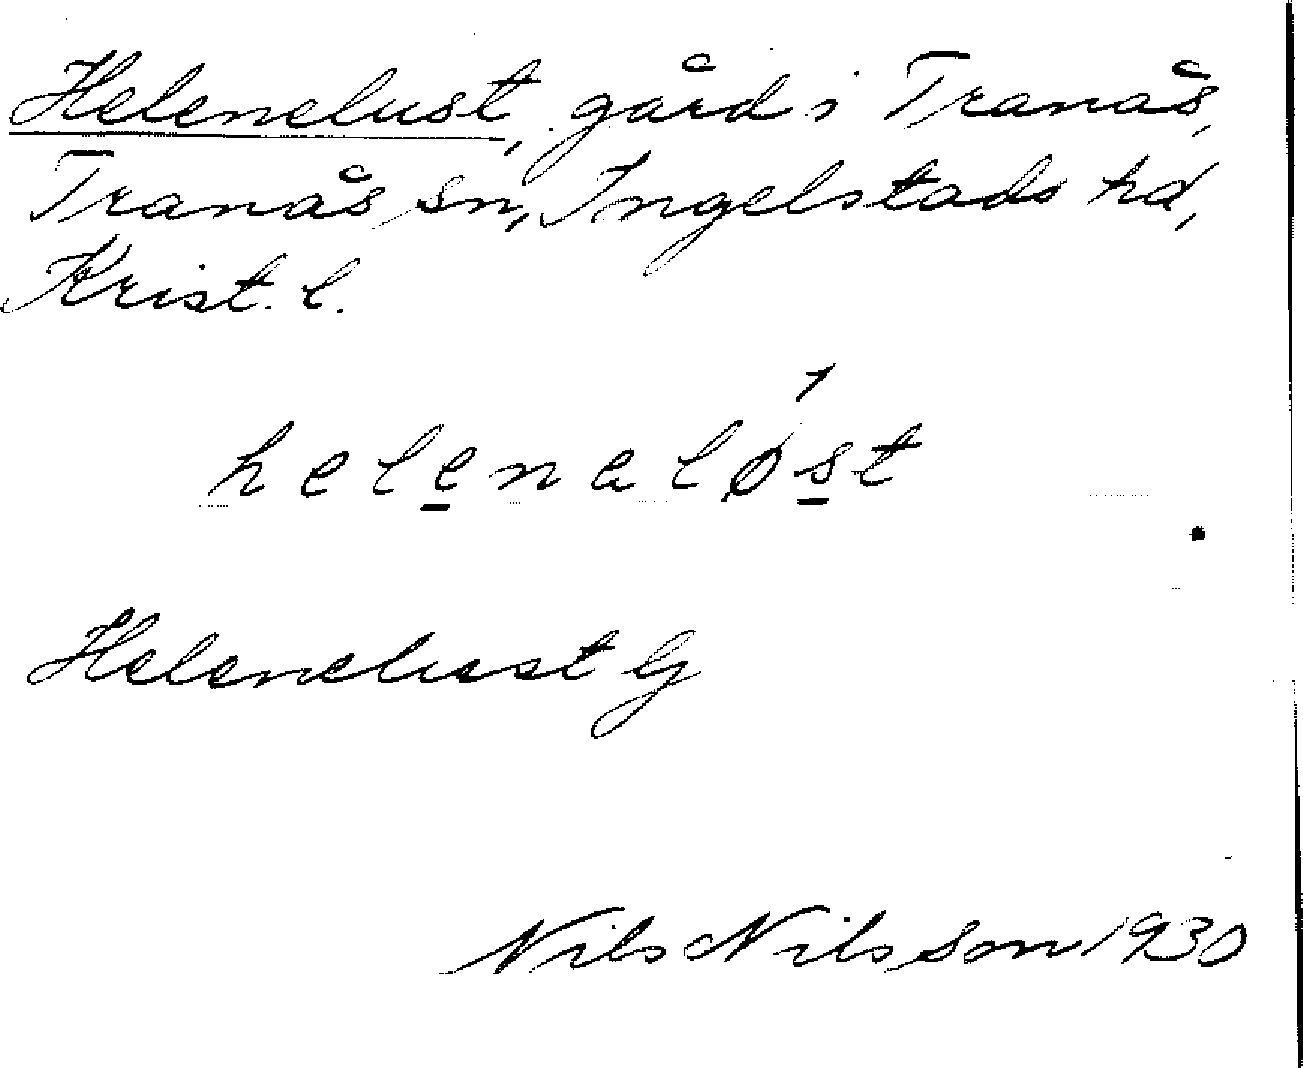 Helenelust, gård i Tranås,
Tranås sn, Ingelstads hd,
Krist. l.
helenaløst
Helenelust G
Nils Nilsson 1930